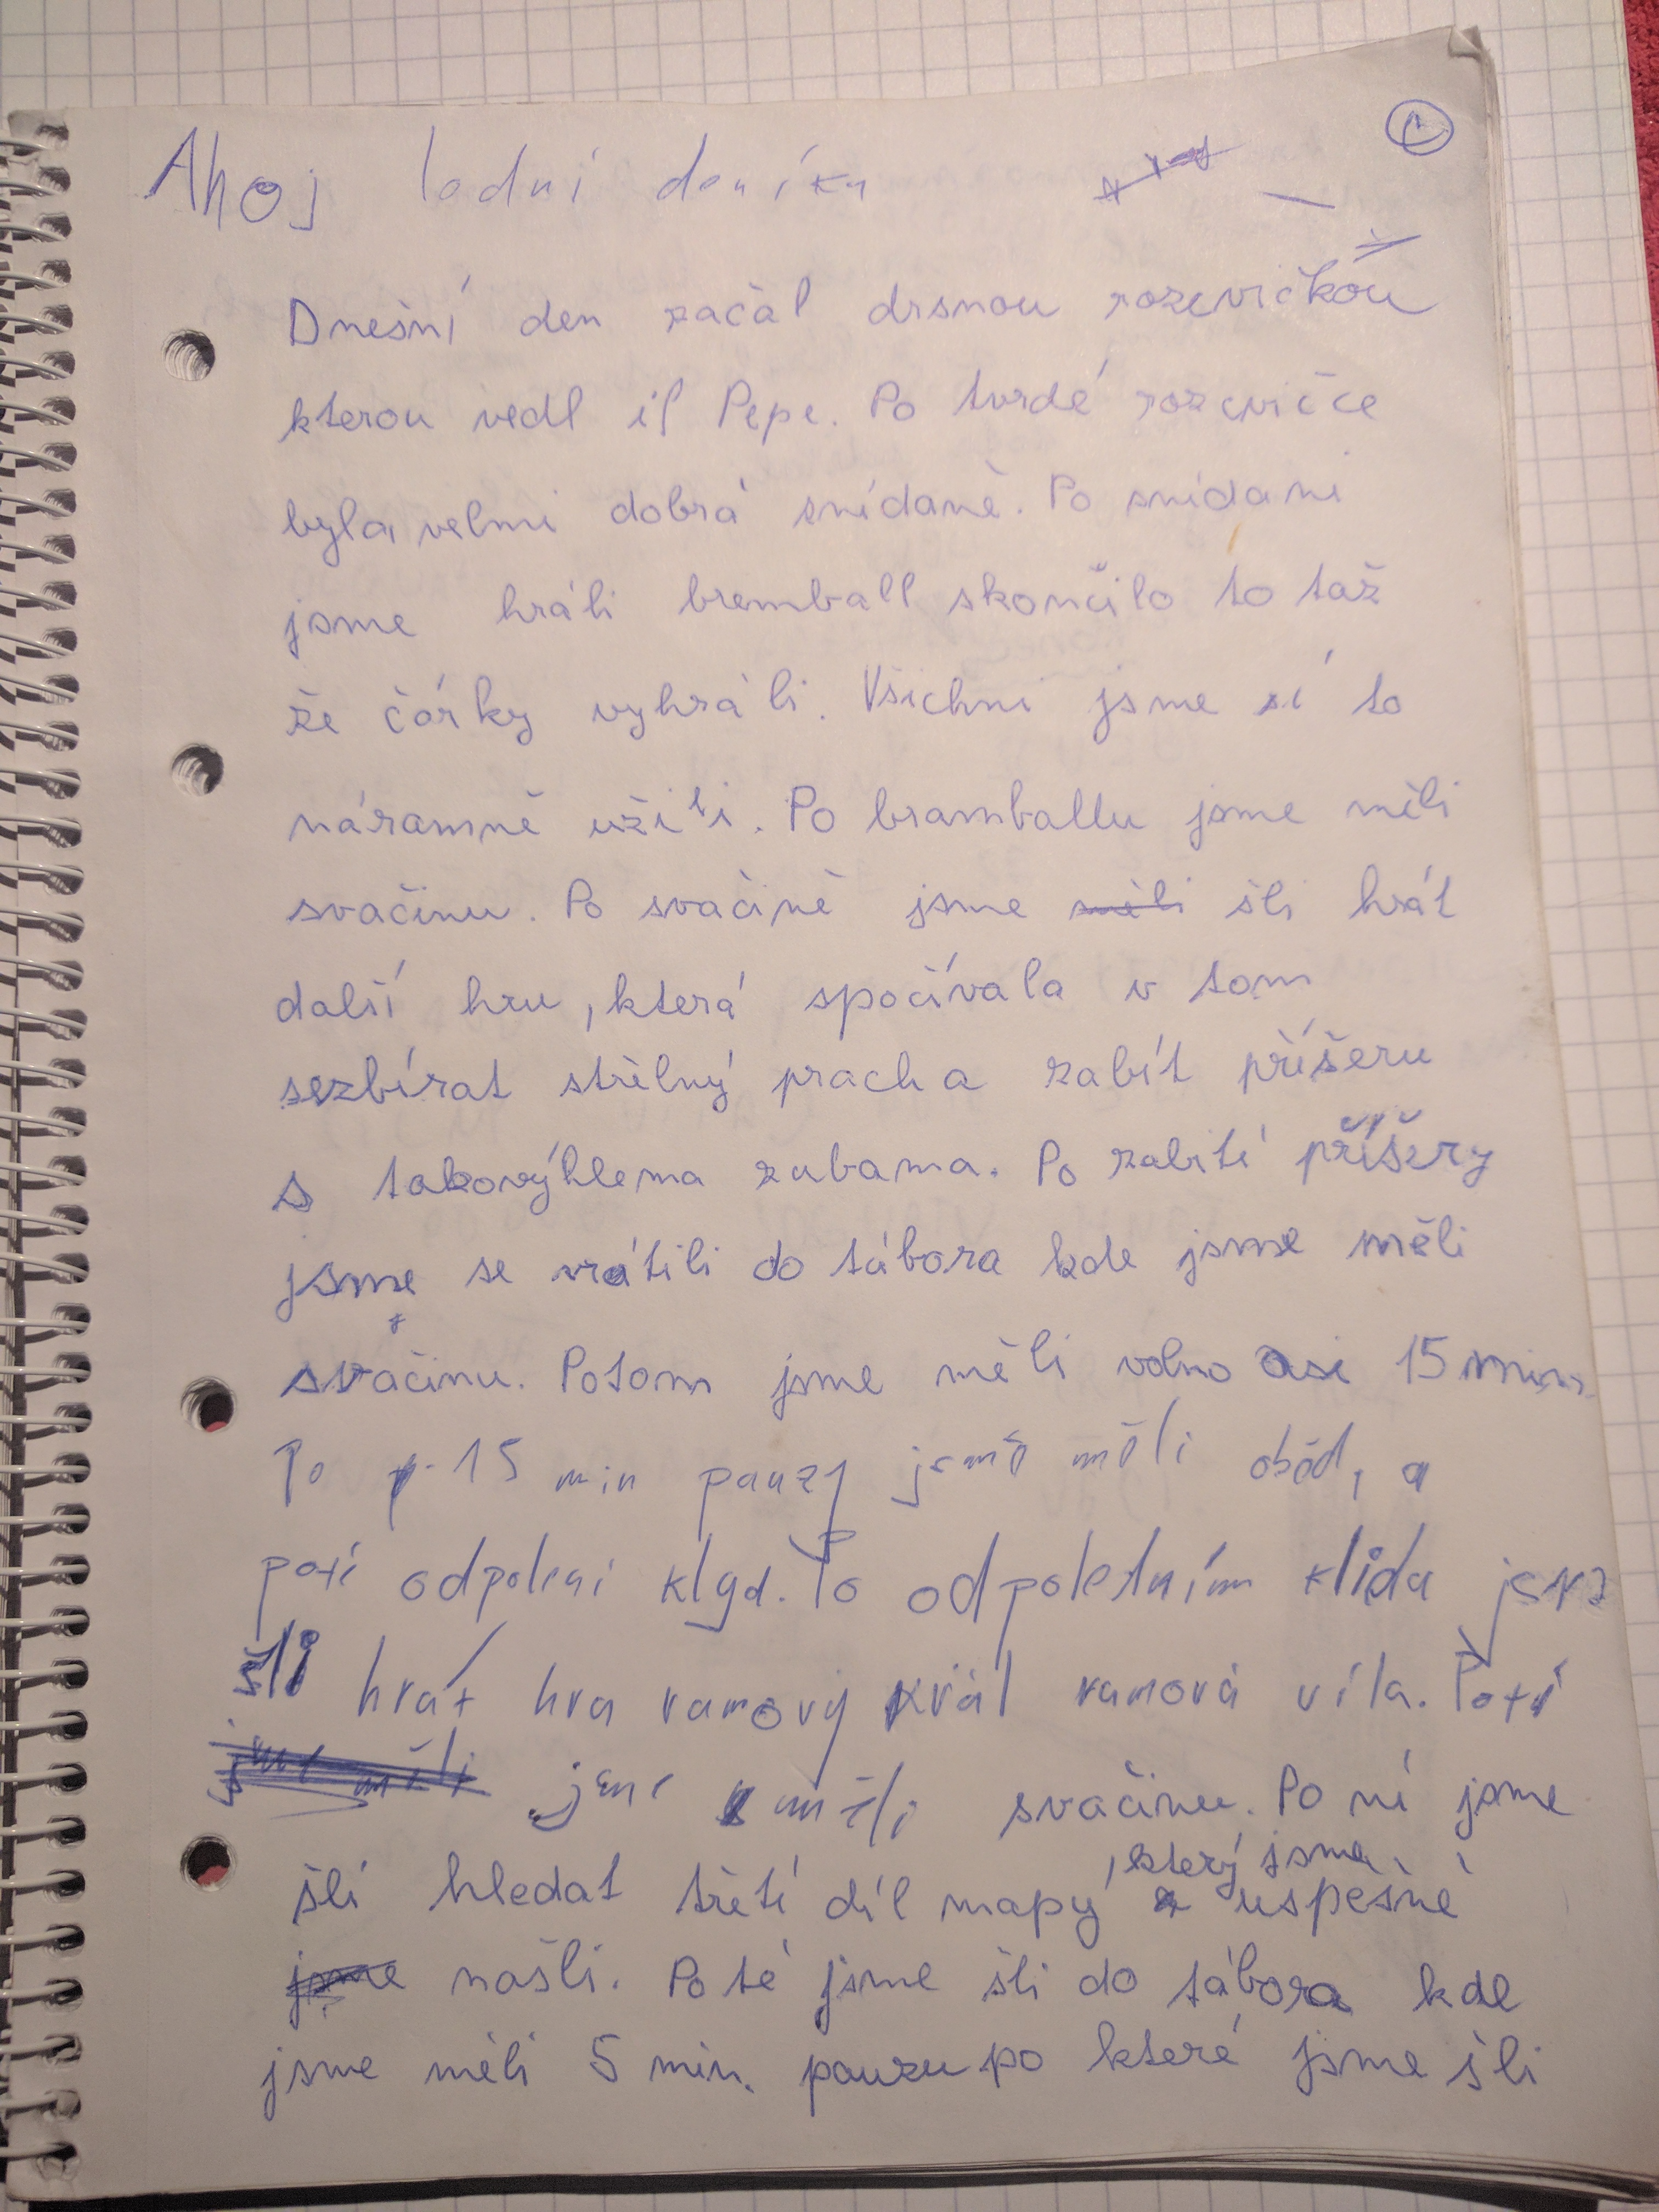 Ahoj lodní deníku
Dnešní den začal drsnou rozcvičkou
kterou vedl il Pepe. Po tvrdé rozcvičce
byla velmi dobrá snídaně. Po snídani
jsme hráli bremball skončilo to taž
že čórky vyhráli. Všichni jsme sí to
náramně užili. Po bramballu jsme měli
svačinu. Po svačině jsme měli šli hrát
další hru, která spočívala v tom
sezbírat střelný prach a zabít příšeru
s takovýhlema zubama. Po zabití příšery
jsme se vrátili do tábora kde jsme měli
svačinu. Potom jsme měli volno asi 15 min
Po 15 min pauzy jsmě měli oběd, a
poté odpolení klyd. Po odpoletním klidu jsme
šli hrát hra vanový král vanová víla. Poté
jme měli jsme měli svačinu. Po ní jsme
, který jsme
šli hledat třetí díl mapy a uspěšně
jsme našli. Poté jsme šli do tábora kde
jsme měli 5 min. pauzu po které jsme šli